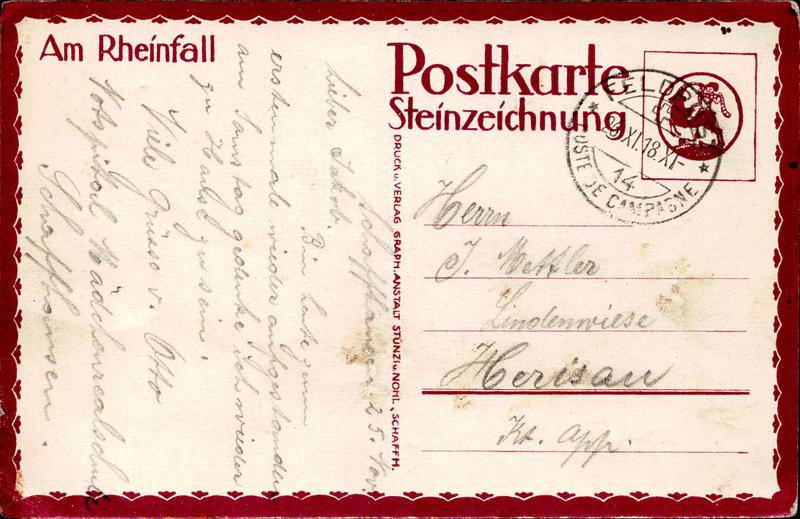 Am Rheinfall
Postkarte
Steinzeichnung
FELDPOST
26.XI.18.XI-
14
POSTE DE CAMPAGNE
DRUCK u. VERLAG GRAPH. ANSTALT STÜNZI u. NOHL, SCHAFFH.
Schaffhausen 25. Nov.
Lieber Jakob!
Bin heute zum
erstenmale wieder aufgestanden
am Samstag gedenke ich wieder
zu Hause zu sein!
Viele Grüsse v. Otto
Notspital Mädchenrealschule
Schaffhausen.
Herrn
J. Mettler
Lindenwiese
Herisau
Kt. App.